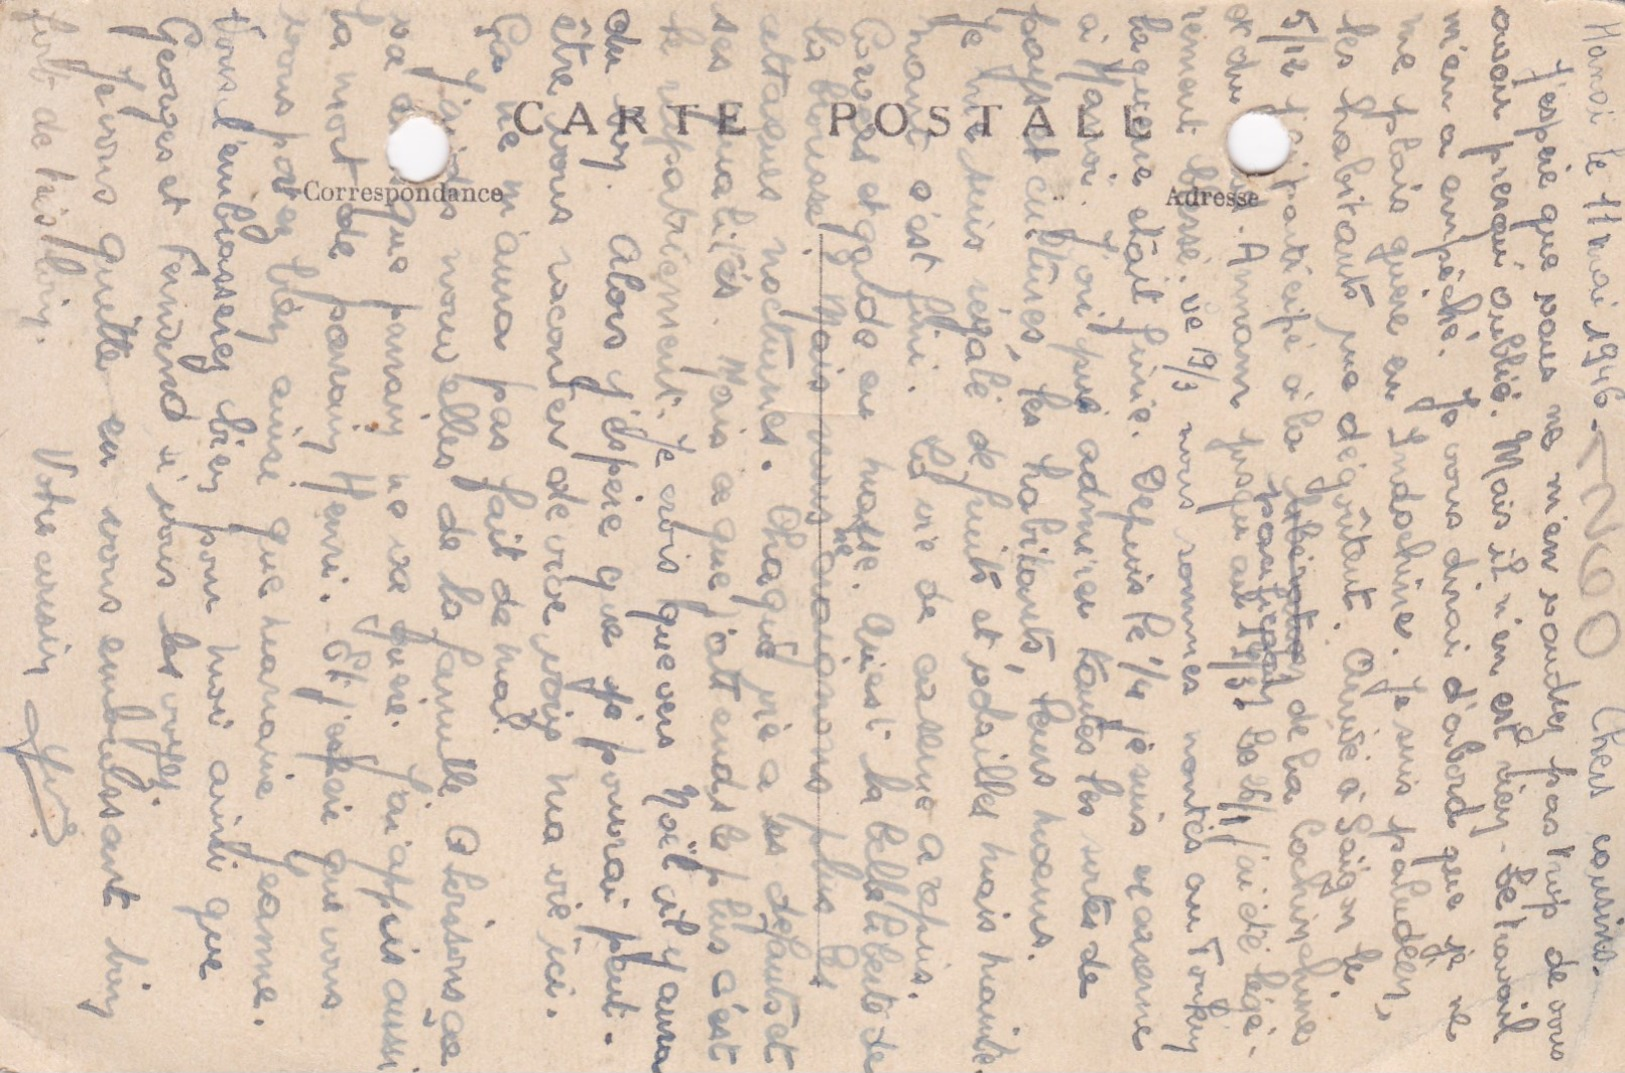 CARTE POSTALE
Correspondance
Adresse
Hanoï le 11 mai 1946.
Chers cousins.
J'espère que vous ne m'en voudrez pas trop de vous
avoir presqu'oublié. Mais il n'en est rien - le travail
m'en a empêché. Je vous dirai d'abord que je ne
me plais guère en Indochine. Je suis paludéen,
les habitants me dégoûtant. Arrivé à Saïgon le
5/12 j'ai participé à la pacification de la Cochinchine
et du Sud. Annam jusqu'au 15/3. Le 26/1 j'ai été légè-
rement blessé. Le 19/3 nous sommes montés au Tonkin
la guerre était finie. Depuis le 1/4 je suis en caserne
à Hanoï. J'ai pu admirer toutes les sortes de
pays et cultures, les habitants, leurs moeurs.
Je me suis régalé de fruits et volailles mais mainte-
nant c'est fini. La vie de caserne a repris.
Corvées et garde en masse. Ainsi la belle liberté de
la brousse. Mais nous ne craignons plus les
attaques nocturnes. Chaque vie a ses défauts et
ses qualités. Mais ce que j'attends le plus c'est
le rapatriement. Je crois que vers Noël il y aura
du bon. Alors j'espère que je pourrai peut.
être vous raconter de vive voix ma vie ici.
Ça ne m'aura pas fait de mal.
J'ai des nouvelles de la famille
que parrain ne va guère. J'ai appris aussi
la mort de parrain Henri. Et j'espère que vous
vous portez bien ainsi que marraine Jeanne.
Vous l'embrasserez bien pour moi ainsi que
Georges et Fernand si vous les voyez.
Je vous quitte en vous embrassant bien
fort de très loin.
Votre cousin